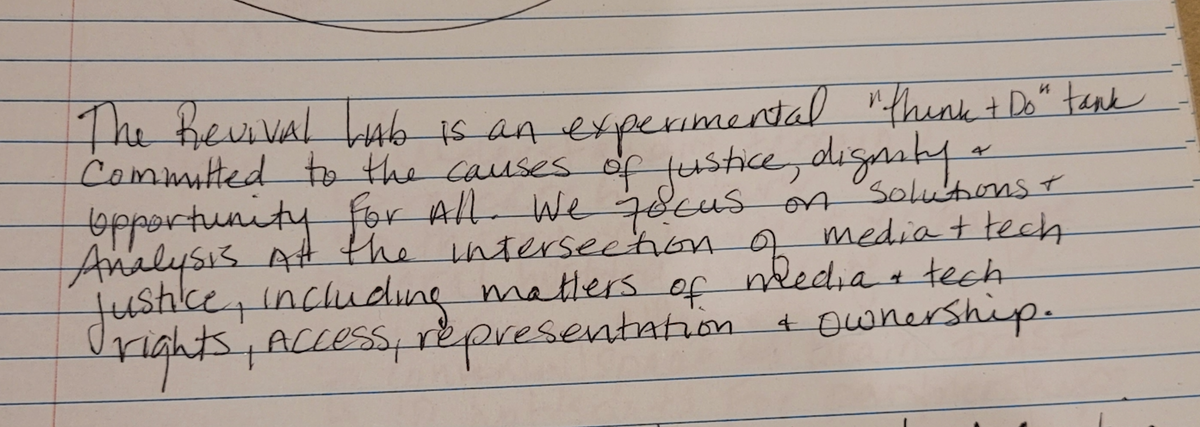 The Revival Lab is an experimental "Think + Do" tank
Committed to the causes of justice, dignity +
opportunity for All. We focus on solutions +
Analysis At the intersection of media + tech
justice, including matters of media + tech
rights, Access, representation + ownership.